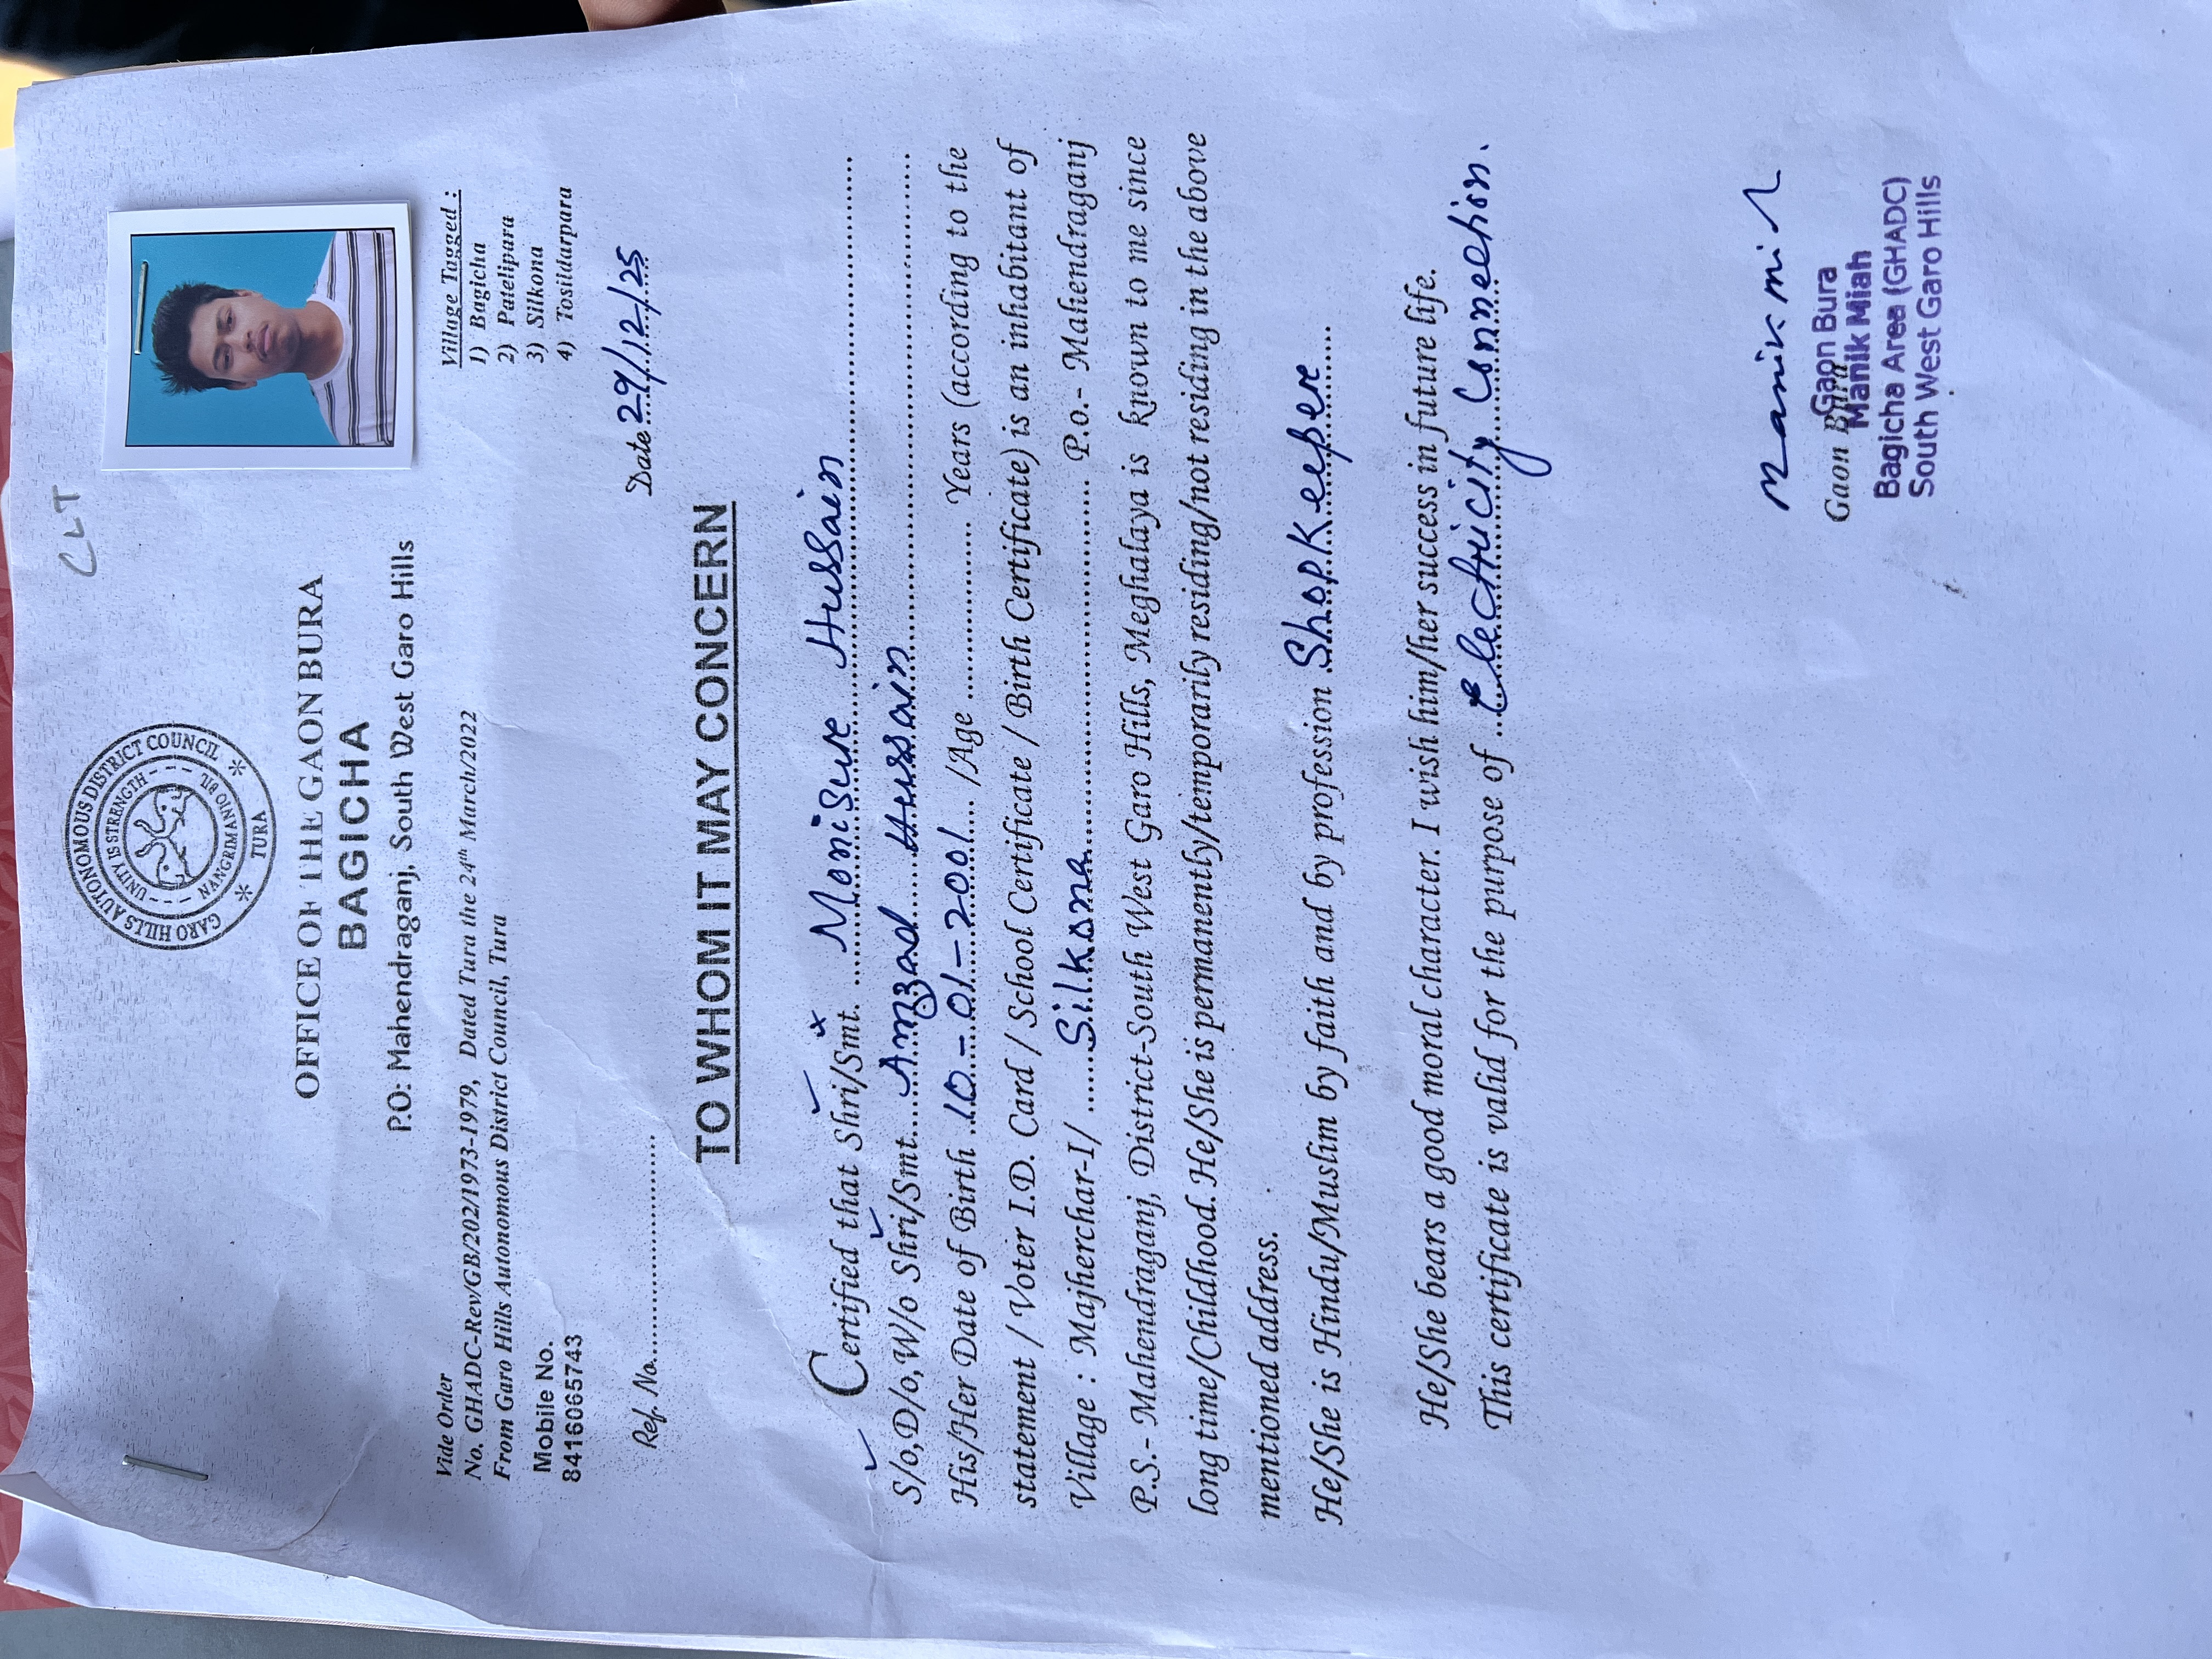 CLT
GARO HILLS AUTONOMOUS DISTRICT COUNCIL
UNITY IS STRENGTH
NANGRIMANIO BIL
TURA
OFFICE OF THE GAON BURA
BAGICHA
P.O: Mahendraganj, South West Garo Hills
Vide Order
No. GHADC-Rev/GB/202/1973-1979, Dated Tura the 24th March/2022
From Garo Hills Autonomous District Council, Tura
Mobile No.
8416065743
Village Tagged :
1) Bagicha
2) Patelipara
3) Silkona
4) Tosildarpara
Ref. No.
Date 29/12/25
TO WHOM IT MAY CONCERN
Certified that Shri/Smt. Monisur Hussain
S/o,D/o,W/o Shri/Smt. Amzad Hussain
His/Her Date of Birth 10-01-2001 /Age Years (according to the
statement / Voter I.D. Card / School Certificate / Birth Certificate) is an inhabitant of
Village : Majherchar-I/ Silkona P.o.- Mahendraganj
P.S.- Mahendraganj, District-South West Garo Hills, Meghalaya is known to me since
long time/Childhood. He/She is permanently/temporarily residing/not residing in the above
mentioned address.
He/She is Hindu/Muslim by faith and by profession ShopKeeper
He/She bears a good moral character. I wish him/her success in future life.
This certificate is valid for the purpose of Electricity Connection.
Gaon Bura
Gaon Bura
Manik Miah
Bagicha Area (GHADC)
South West Garo Hills